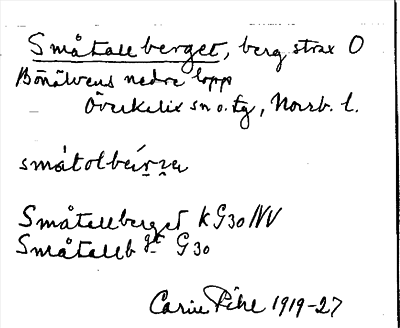 Småtallberget, berg strax O
Bönälvens nedre lopp
Överkalix sn o. tg, Norrb. l.
småtolbæ̂r̥ʒe
Småtallberget K G30 NV
Småtallb gt G30
Carin Pihl 1919-27